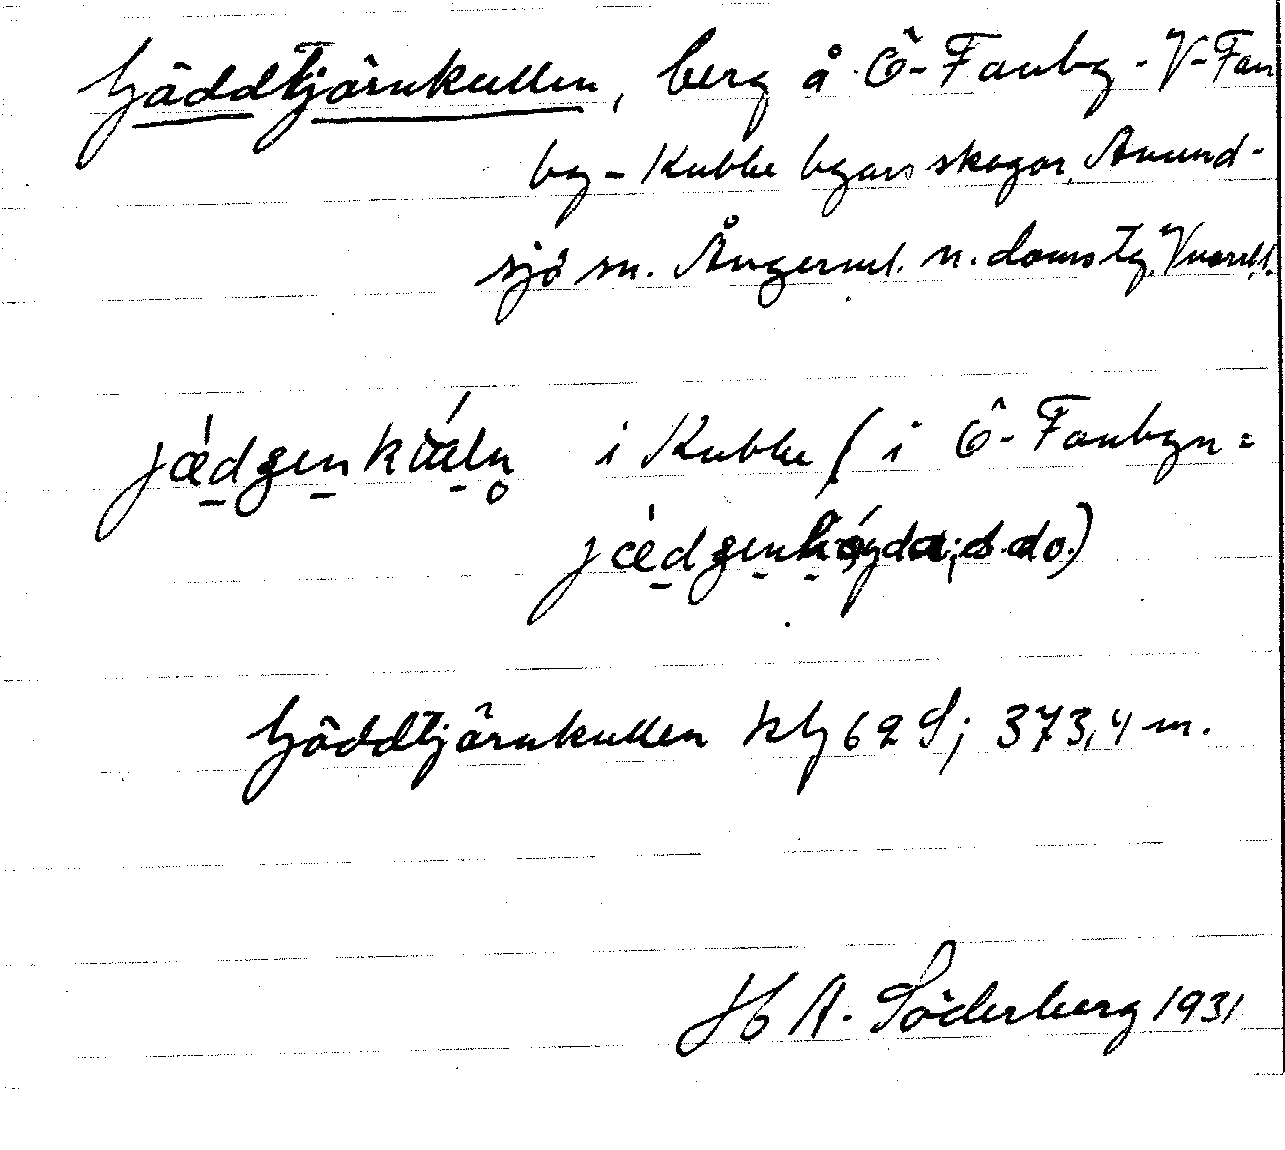 Gäddtjärnkullen, berg å Ö-Fanby - V-Fan
by - Kubbe byars skogar, Anund-
sjö sn. Ångerml. n. doms tg. Vnorrl.
i Kubbe (i Ö-Fanbyn =
do.)
Gäddtjärnkullen kbl 62 S; 373,4 m.
H A. Söderberg 1931